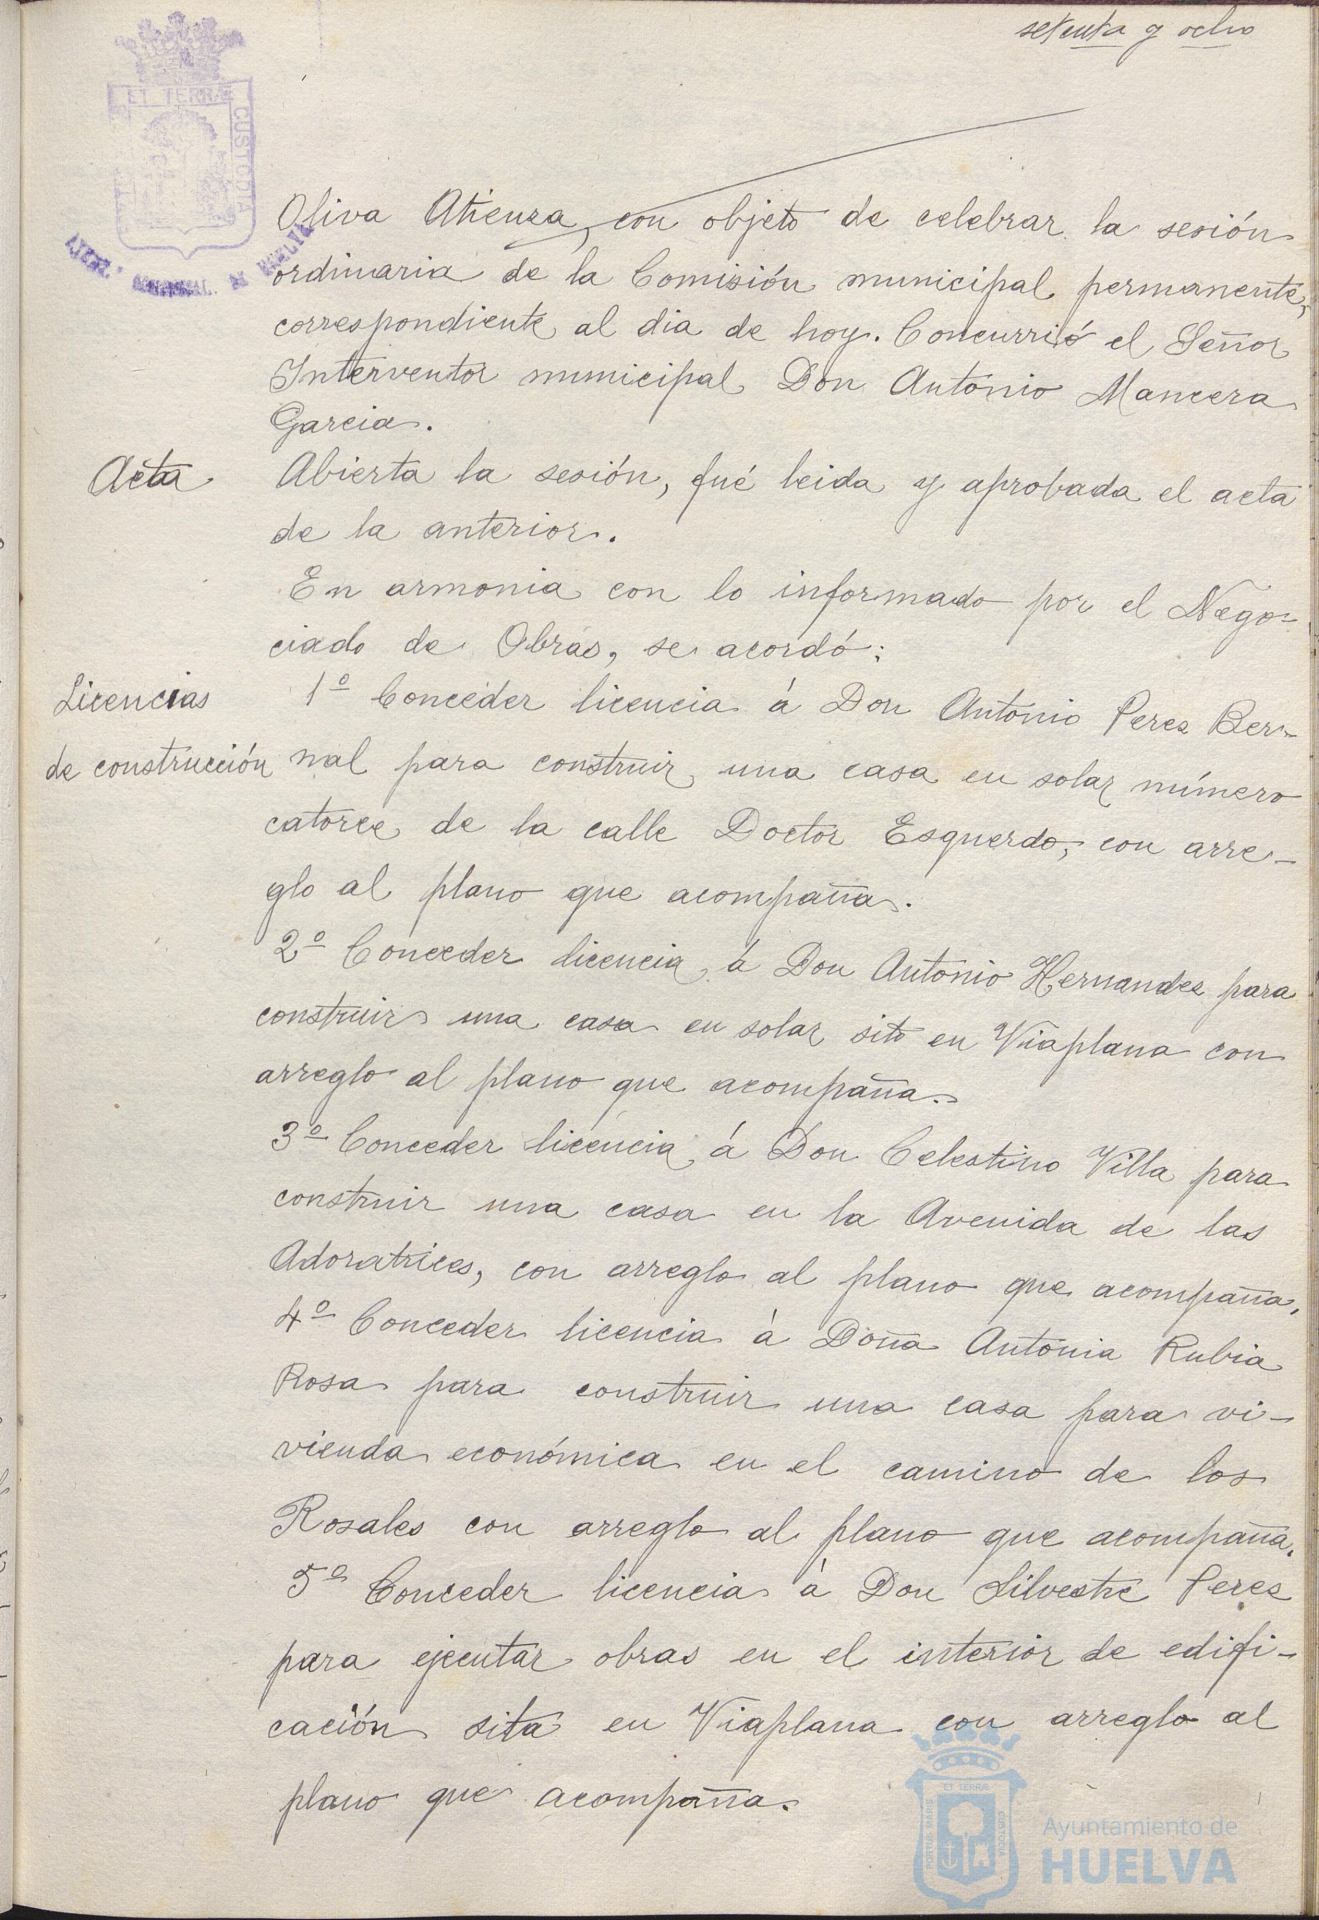 setenta y ocho
ET TERRÆ
CUSTODIA
Oliva Atienza, con objeto de celebrar la sesión
ordinaria de la Comisión municipal permanente,
correspondiente al dia de hoy. Concurrió el Señor
Interventor municipal Don Antonio Mancera
Garcia.
Acta
Abierta la sesión, fué leida y aprobada el acta
de la anterior.
En armonia con lo informado por el Nego-
ciado de Obras, se acordó:
Licencias
de construcción
1º Conceder licencia á Don Antonio Peres Ber-
nal para construir una casa en solar número
catorce de la calle Doctor Esquerdo, con arre-
glo al plano que acompaña.
2º Conceder licencia á Don Antonio Hernandez para
construir una casa en solar sito en Viaplana con
arreglo al plano que acompaña.
3º Conceder licencia á Don Celestino Villa para
construir una casa en la Avenida de las
Adoratrices, con arreglo al plano que acompaña.
4º Conceder licencia á Doña Antonia Rubia
Rosa para construir una casa para vi-
vienda económica en el camino de los
Rosales con arreglo al plano que acompaña.
5º Conceder licencia á Don Silvestre Peres
para ejecutar obras en el interior de edifi-
cación sita en Viaplana con arreglo al
plano que acompaña.
PORTUS MARIS
ET TERRÆ
CUSTODIA
Ayuntamiento de
HUELVA